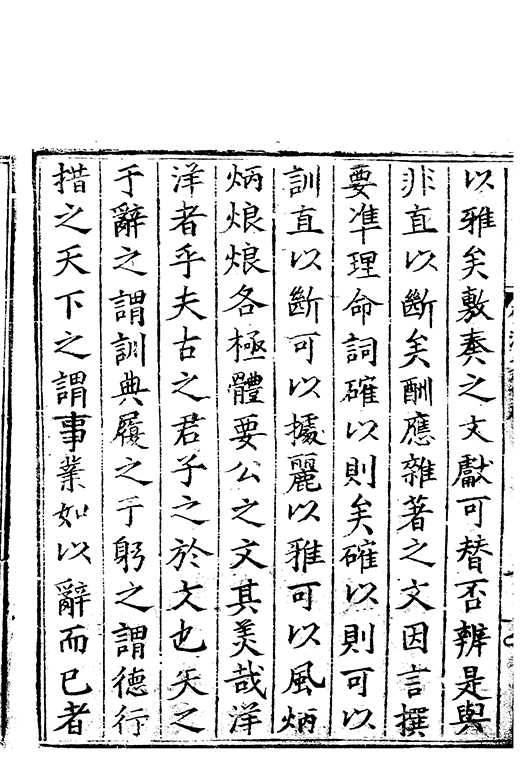 以雅矣敷奏之文獻可替否辨是與
非直以斷矣酬應雜著之文因言撰
要準理命詞確以則矣確以則可以
訓直以斷可以據麗以雅可以風炳
炳烺烺各極體要公之文其美哉洋
洋者乎夫古之君子之於文也矢之
于辭之謂訓典履之于躬之謂德行
措之天下之謂事業如以辭而已者